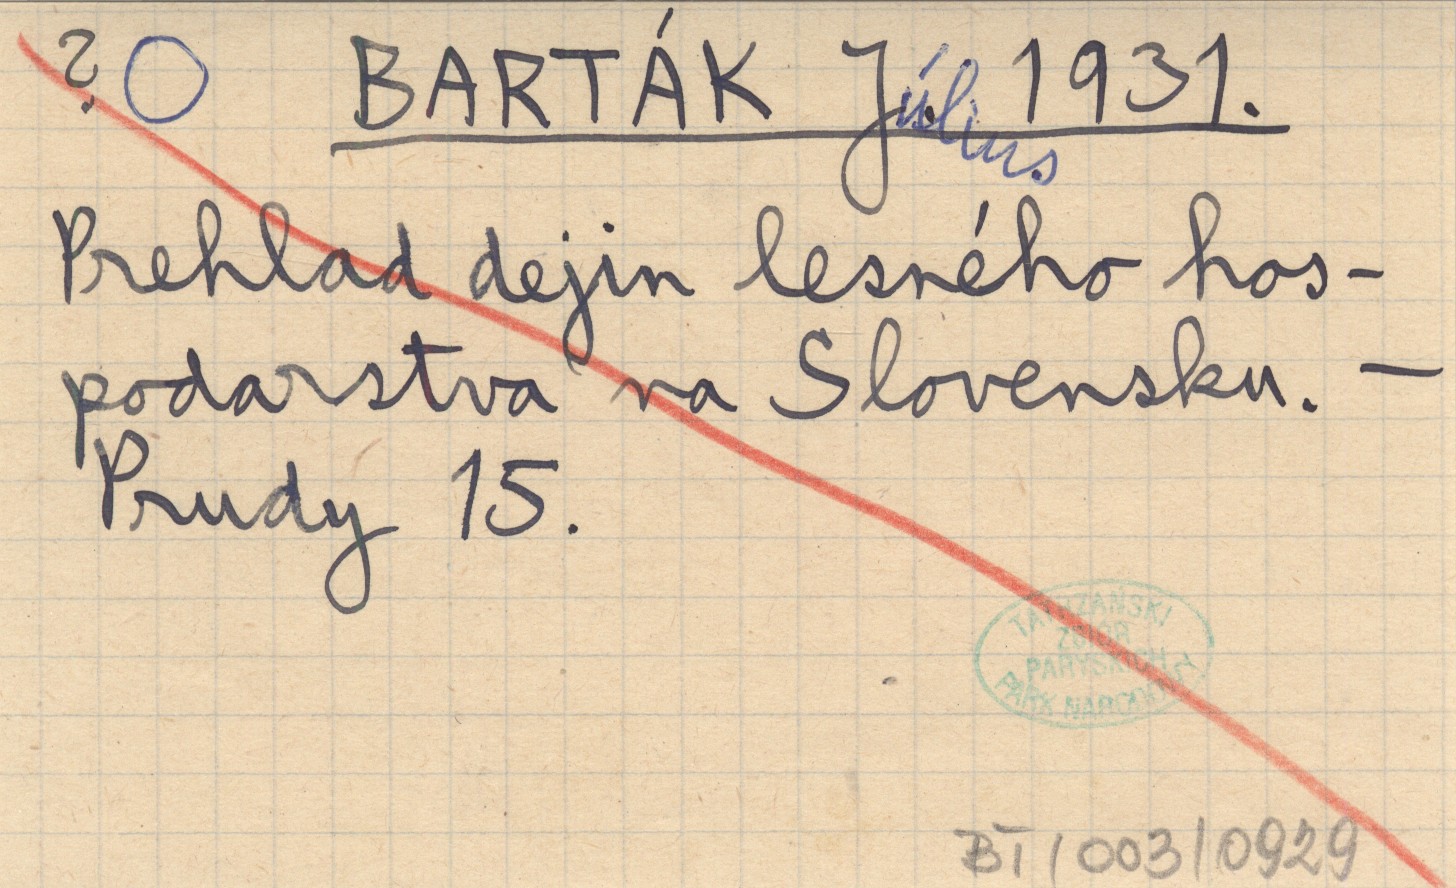 ? BARTÁK Július 1931.
Prehlad dejin lesného hos-
podarstva na Slovensku. —
Prudy 15.
TATRZAŃSKI
ZBIÓR
PARYSKICH
PARK NARODOWY
BT/003/0929